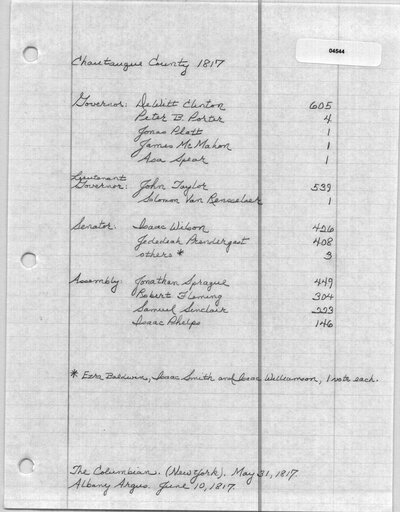 04544
Chautauque County 1817
Governor: DeWitt Clinton 605
Peter B. Porter 4
Jonas Platt 1
James McMahon 1
Asa Spear 1
Lieutenant
Governor: John Taylor 539
Solomon Van Rensselaer 1
Senator: Isaac Wilson 426
Jedediah Prendergast 408
others * 3
Assembly: Jonathan Sprague 449
Robert Fleming 304
Samuel Sinclair 223
Isaac Phelps 146
* Ezra Baldwin, Isaac Smith and Isaac Williamson, 1 vote each.
The Columbian. (New York). May 31, 1817.
Albany Argus. June 10, 1817.